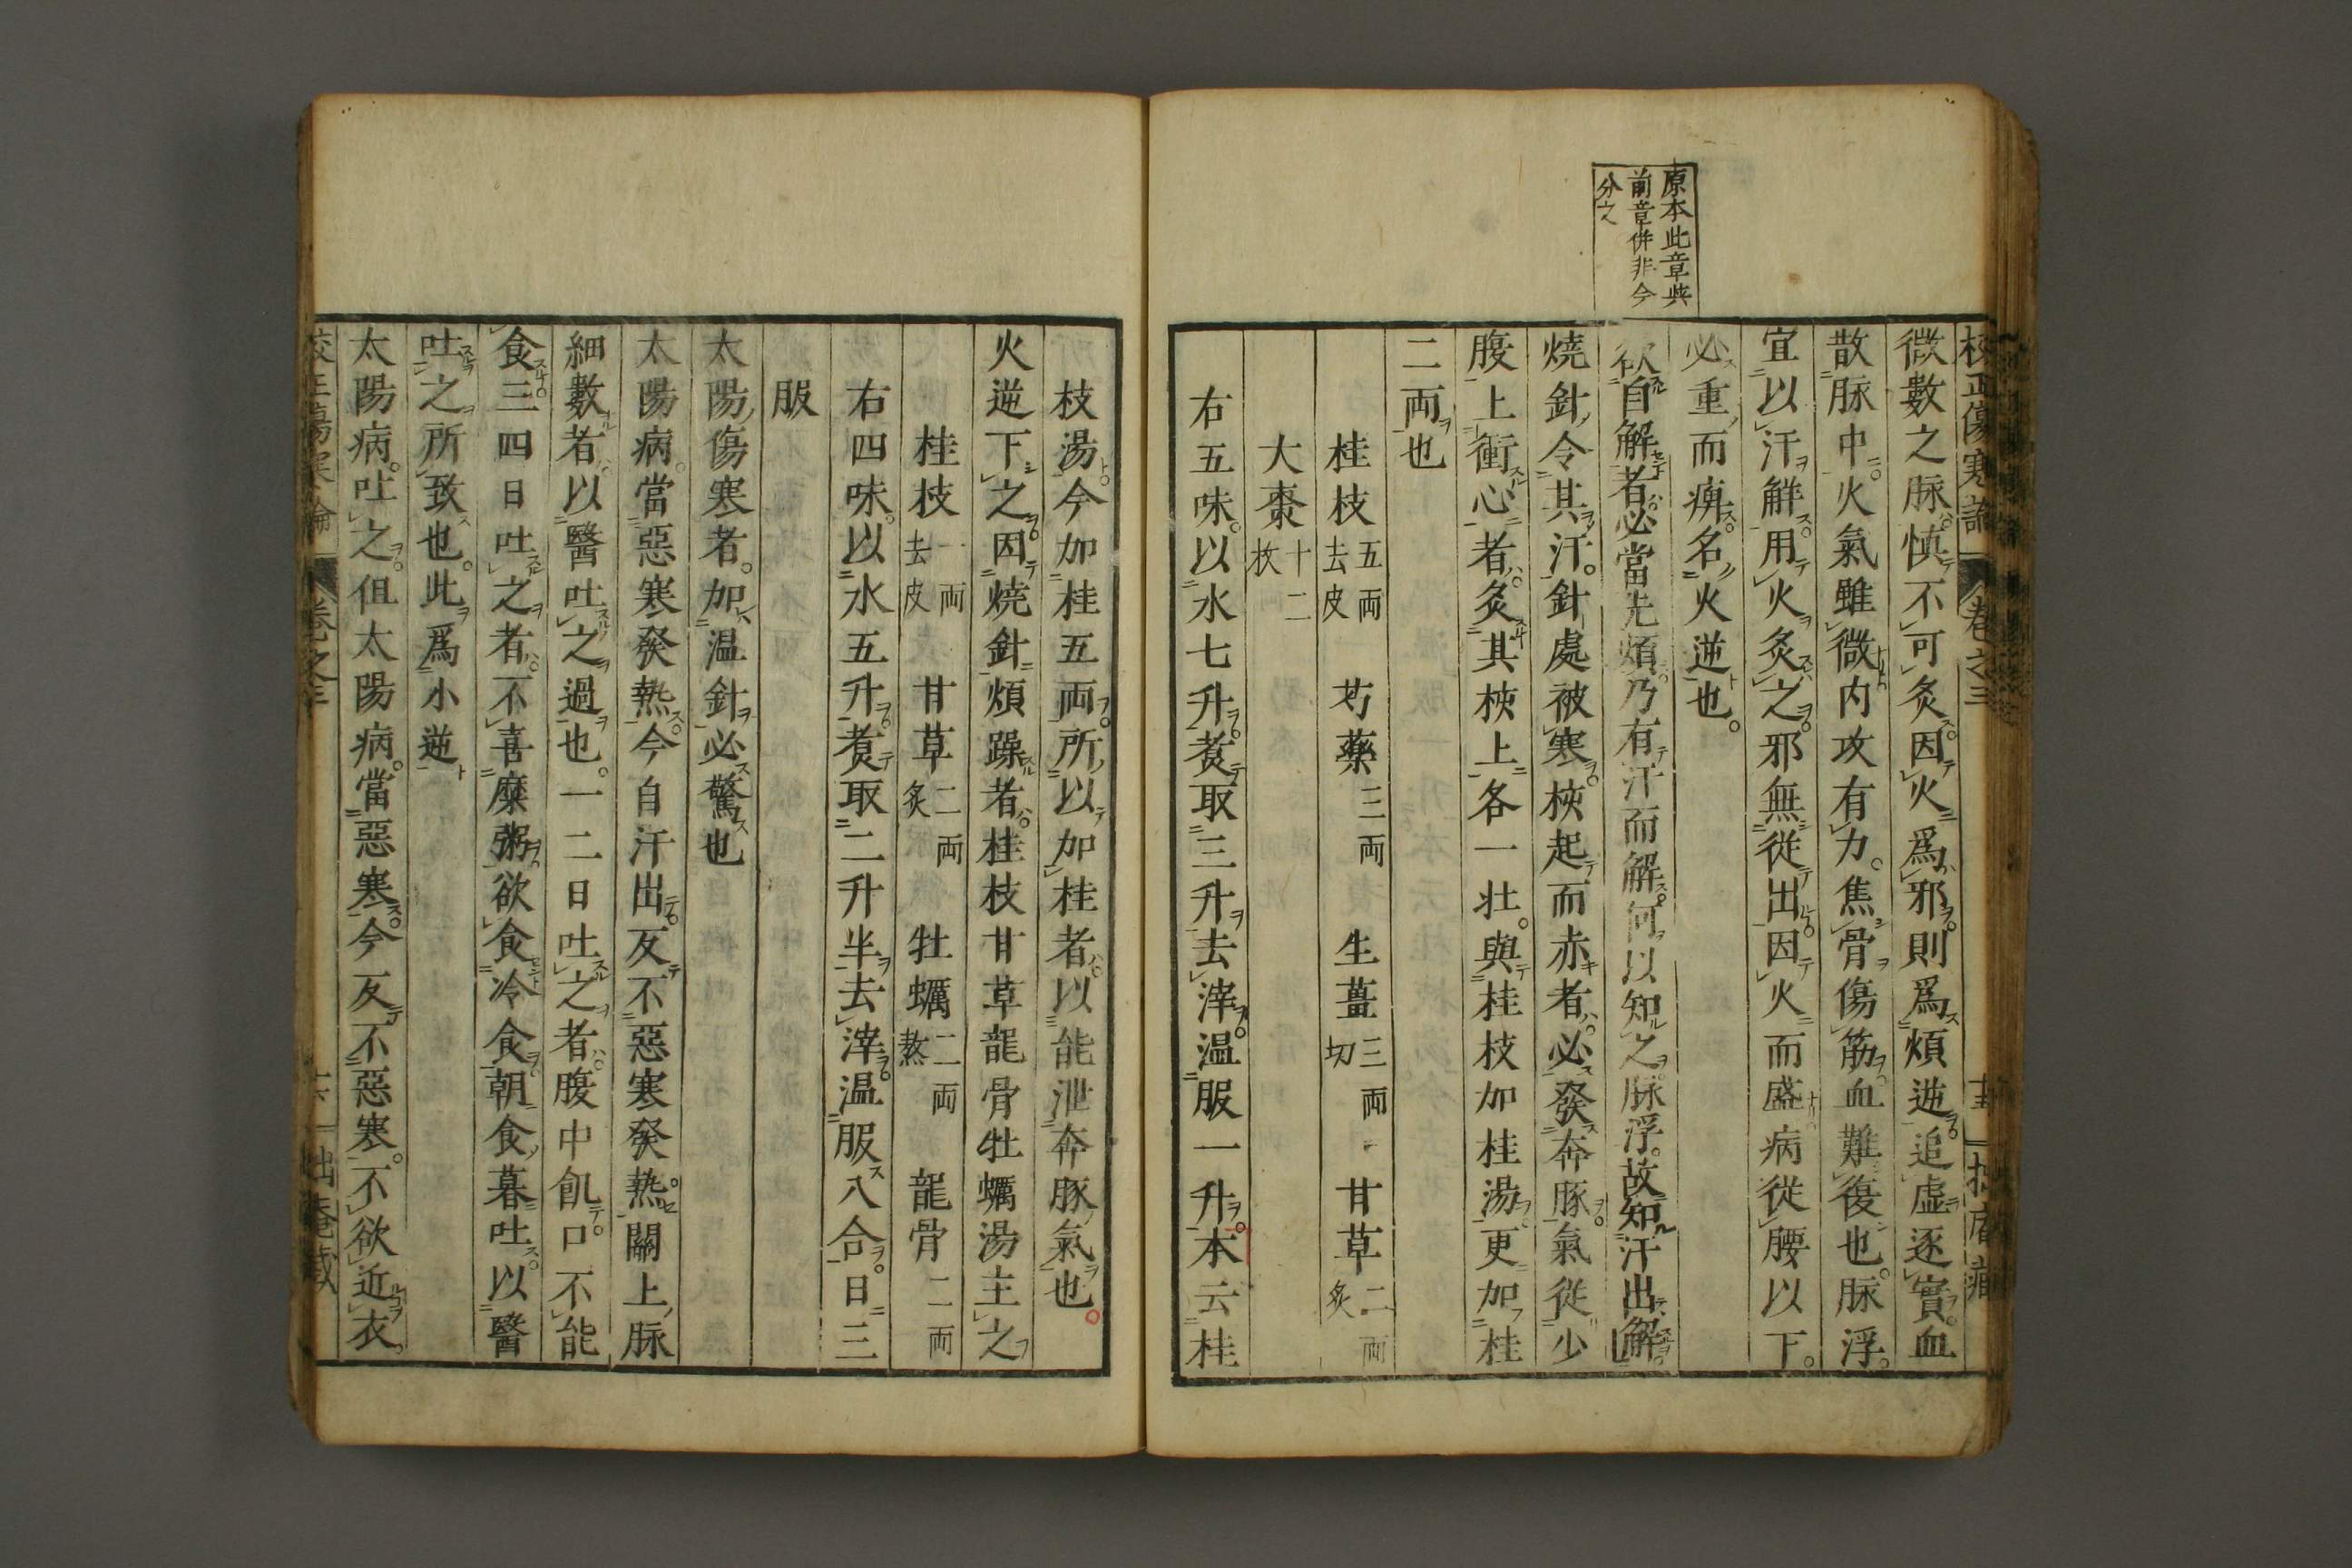 原本此章與
前章併非今
分之
校正傷寒論 卷之三
微數之脉。慎不可灸。因火爲邪。則爲煩逆。追虛逐實。血
散脉中。火氣雖微。内攻有力。焦骨傷筋。血難復也。脉浮。
宜以汗解。用火灸之。邪無從出。因火而盛。病從腰以下。
必重而痹。名火逆也。
欲自解者。必當先煩。乃有汗而解。何以知之。脉浮。故知汗出解。
燒針令其汗。針處被寒。核起而赤者。必發奔豚。氣從少
腹上衝心者。灸其核上各一壯。與桂枝加桂湯。更加桂
二兩也
桂枝五兩去皮 芍藥三兩 生薑三兩切 甘草二兩炙
大棗十二枚
右五味。以水七升。煑取三升。去滓。温服一升。本云桂
枝湯。今加桂五兩。所以加桂者。以能泄奔豚氣也。
火逆下之。因燒針煩躁者。桂枝甘草龍骨牡蠣湯主之
桂枝一兩去皮 甘草二兩炙 牡蠣二兩熬 龍骨二兩
右四味。以水五升。煑取二升半。去滓。温服八合。日三
服
太陽傷寒者。加温針必驚也
太陽病。當惡寒發熱。今自汗出。反不惡寒發熱。關上脉
細數者。以醫吐之過也。一二日吐之者。腹中飢。口不能
食。三四日吐之者。不喜糜粥。欲食冷食。朝食暮吐。以醫
吐之所致也。此爲小逆
太陽病。吐之。但太陽病。當惡寒。今反不惡寒。不欲近衣。
校正傷寒論 卷之三